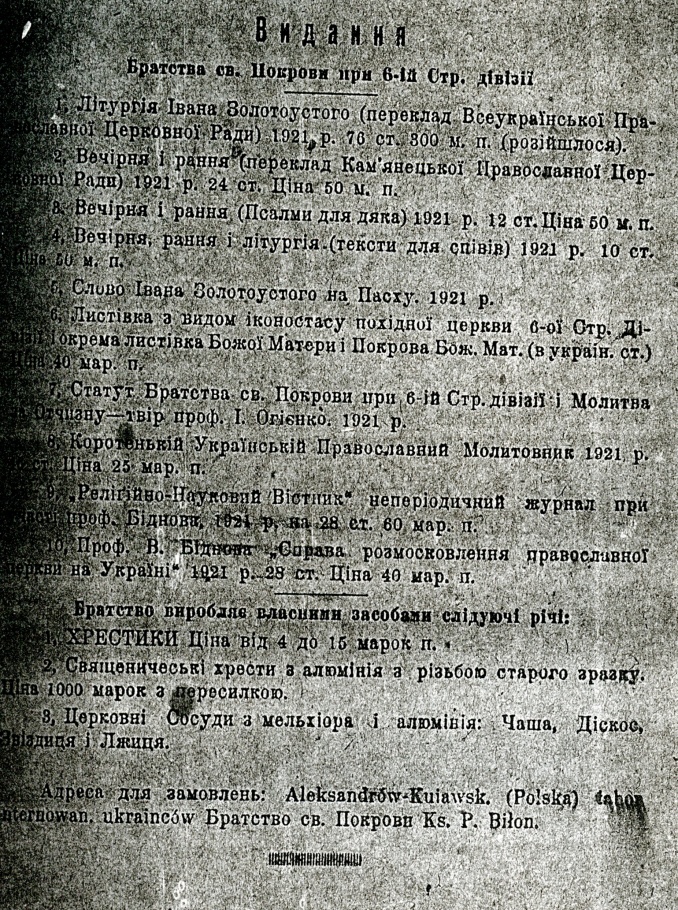 Видання
Братства св. Покрови при 6-ій Стр. дівізії
1, Літургія Івана Золотоустого (переклад Всеукраїнської Пра-
вославної Церковної Ради) 1921 р. 76 ст. 300 м. п. (розійшлося).
2, Вечірня і рання (переклад Кам'янецької Православної Цер-
ковної Ради) 1921 р. 24 ст. Ціна 50 м. п.
3, Вечірня і рання (Псалми для дяка) 1921 р. 12 ст. Ціна 50 м. п.
4, Вечірня, рання і літургія (тексти для співів) 1921 р. 10 ст.
Ціна 50 м. п.
5, Слово Івана Золотоустого на Пасху. 1921 р.
6, Листівка з видом іконостасу похідної церкви 6-ої Стр. Ді-
візії і окрема листівка Божої Матери і Покрова Бож. Мат. (в україн. ст.)
Ціна 40 мар. п.
7, Статут Братства св. Покрови при 6-ій Стр. дівізії і Молитва
за Отчизну—твір проф. І. Огієнко. 1921 р.
8, Коротенькій Українській Православний Молитовник 1921 р.
ст. Ціна 25 мар. п.
9, „Релігійно-Науковий Вістник“ неперіодичний журнал при
проф. Біднова, 1921 р. на 28 ст. 60 мар. п.
10, Проф. В. Біднова „Справа розмосковлення православної
церкви на Україні“ 1921 р. 28 ст. Ціна 40 мар. п.
Братство виробляє власними засобами слідуючі річі:
1, ХРЕСТИКИ Ціна від 4 до 15 марок п.
2, Священичеські хрести з алюмінія з різьбою старого зразку.
Ціна 1000 марок з пересилкою.
3, Церковні Сосуди з мельхіора і алюмінія: Чаша, Діскос,
Звіздиця і Лжиця.
Адреса для замовлень: Aleksandrów-Kuiawsk. (Polska) tabor
internowan. ukraińców Братство св. Покрови Ks. P. Biłon.